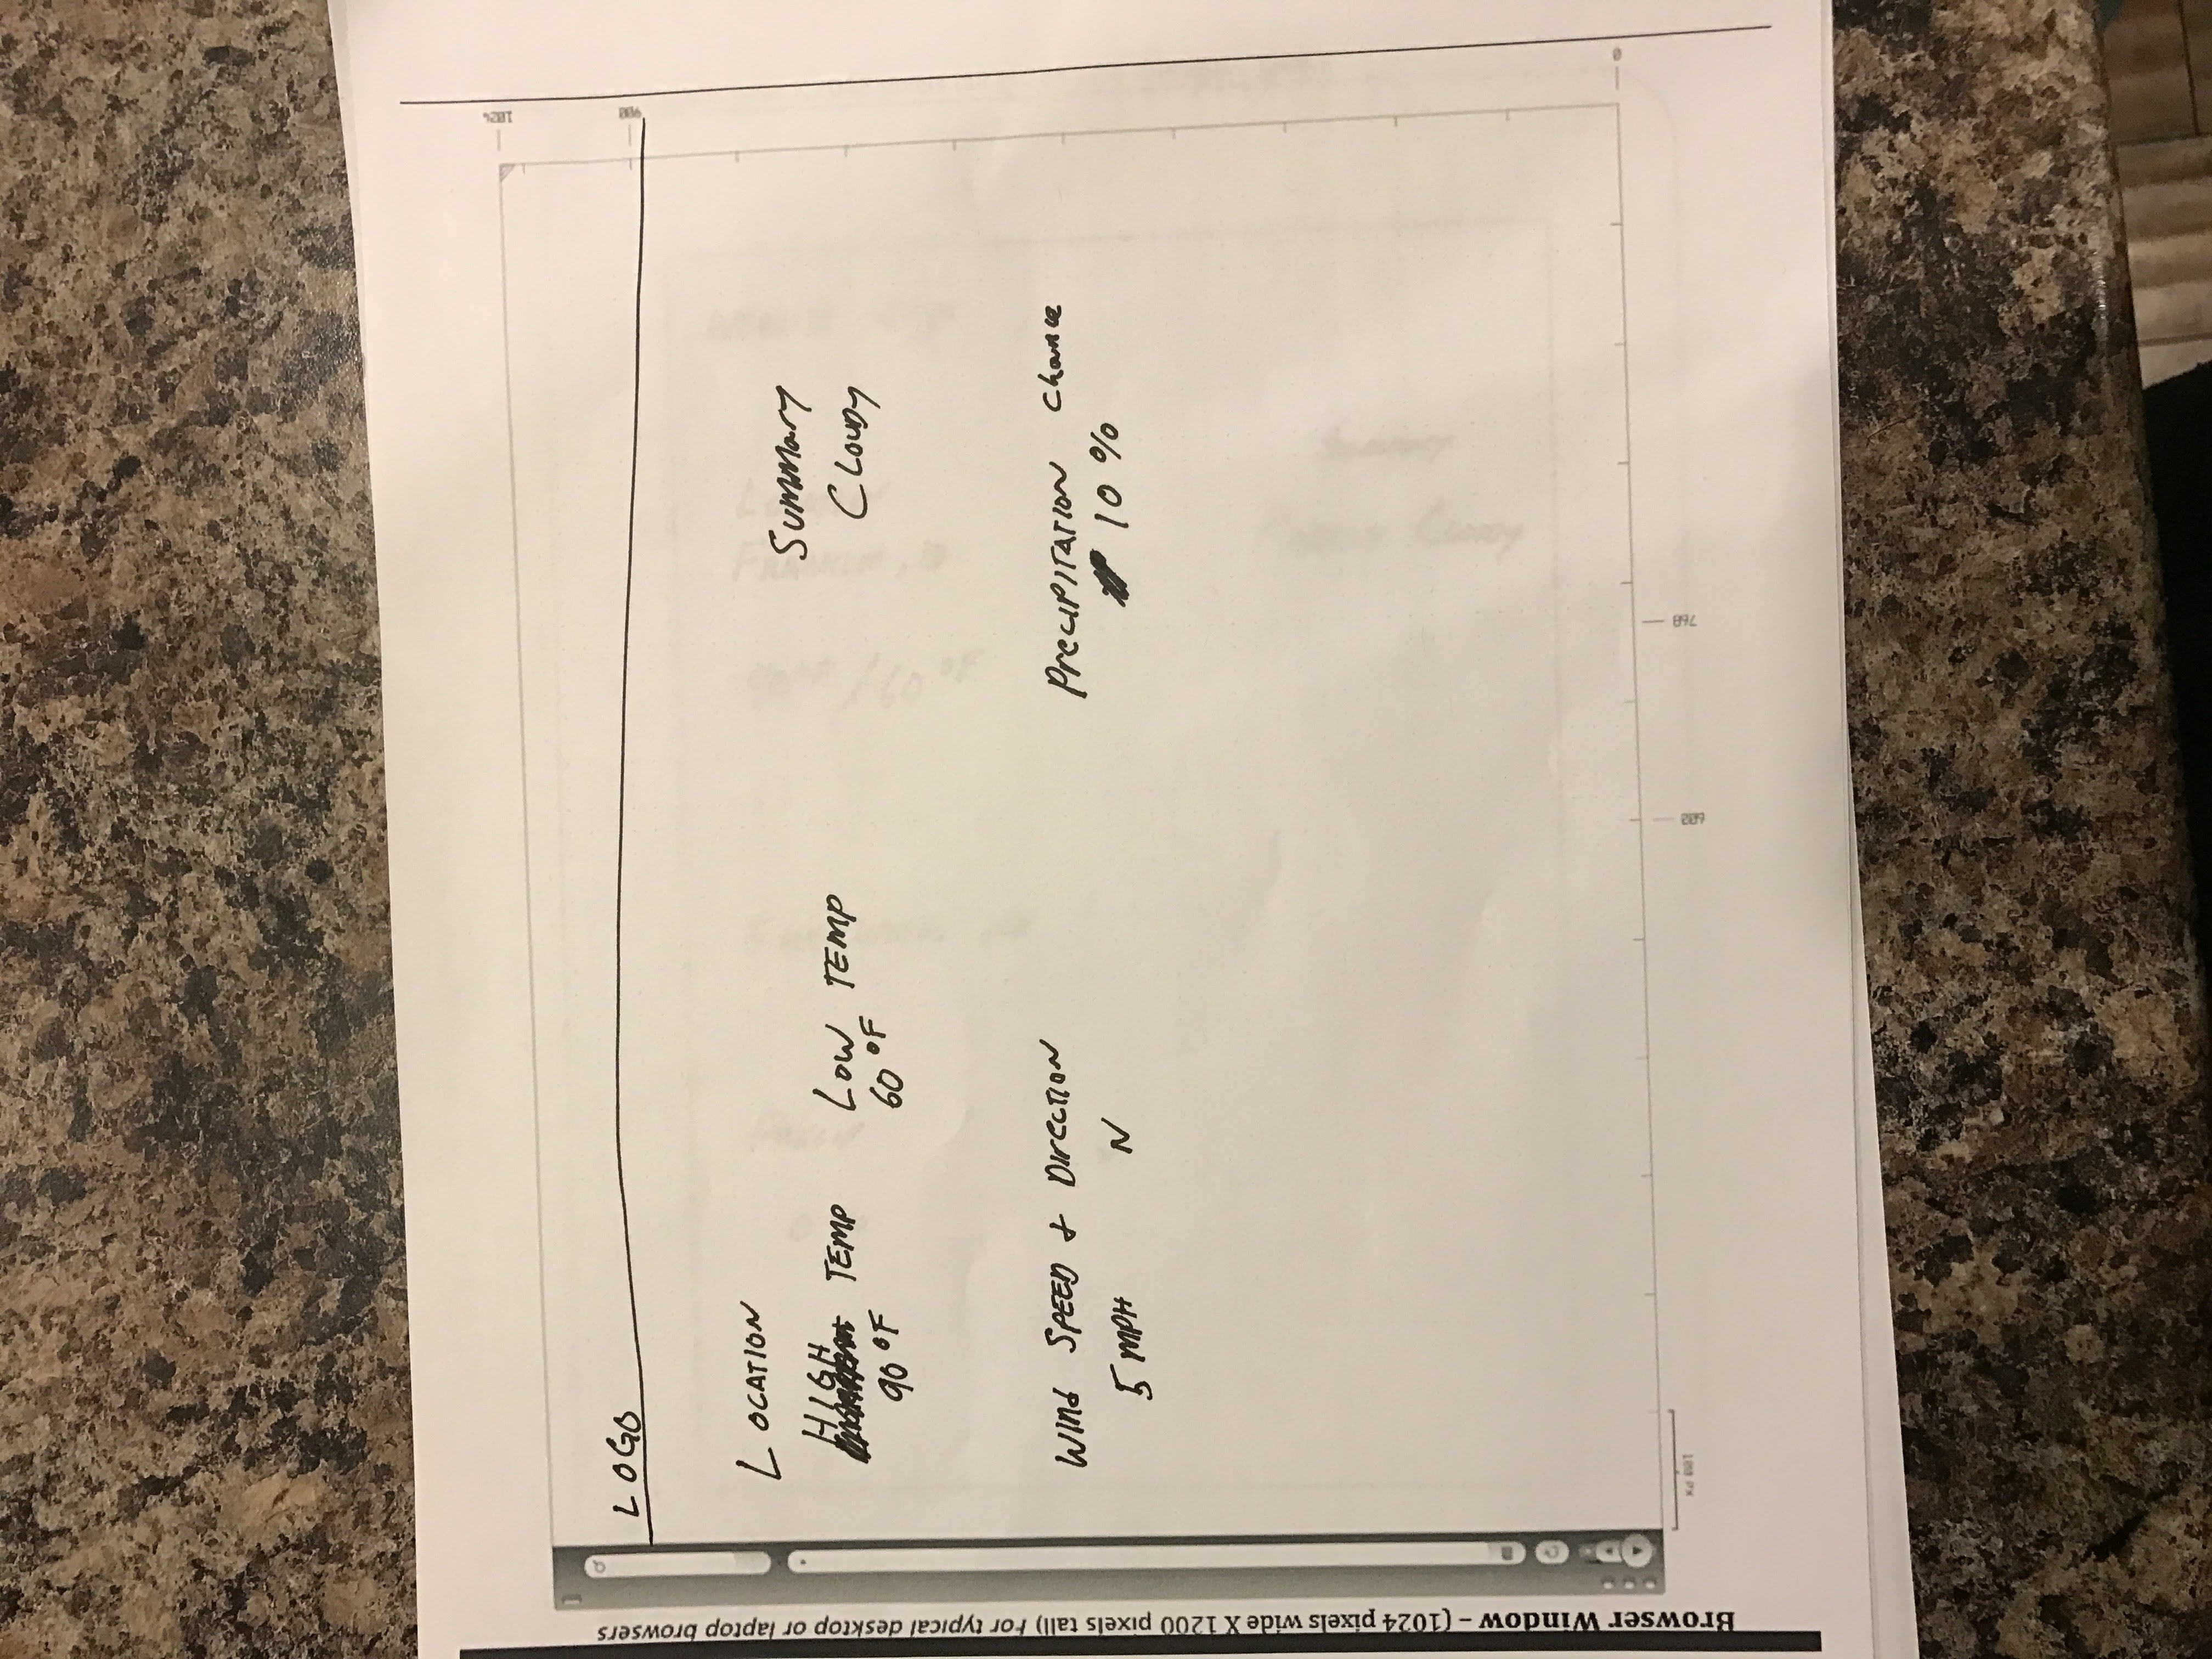 Browser Window – (1024 pixels wide X 1200 pixels tall) For typical desktop or laptop browsers
LOGO
LOCATION
HIGH TEMP LOW TEMP
90 °F 60 °F
Summary
CLOUDY
WIND SPEED & DIRECTION
5 MPH N
PRECIPITATION Chance
10 %
100 PX
600
768
0
900
1024